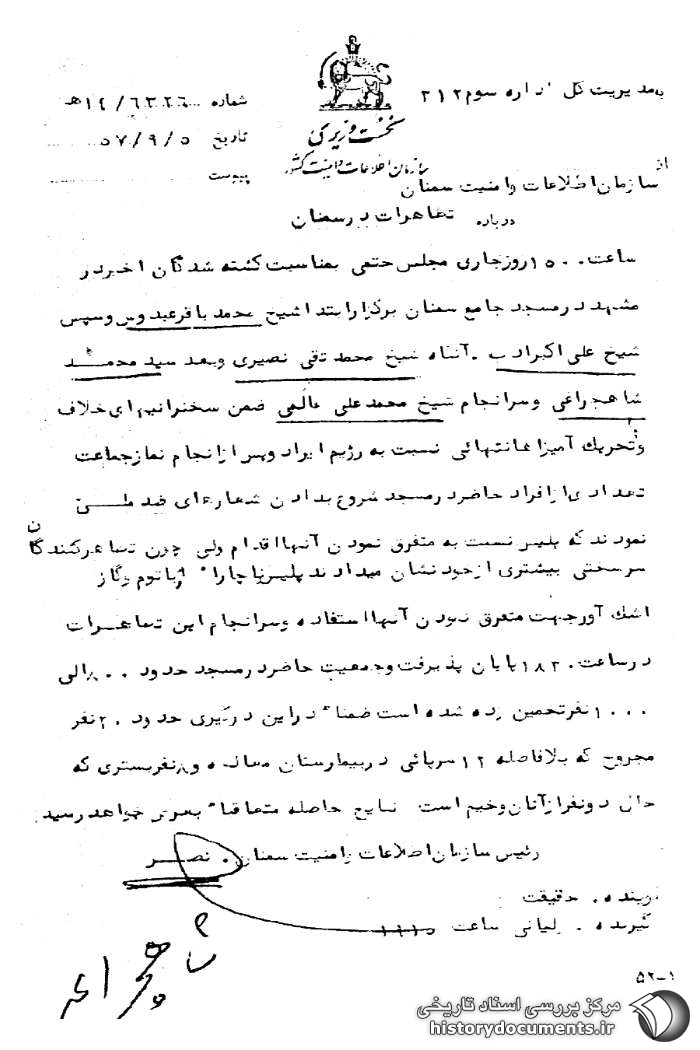 به مدیریت کل اداره سوم ۳۱۲
شماره ۱۴/۶۳۲۶ ه‍
تاریخ ۵۷/۹/۵
پیوست
نخست وزیری
سازمان اطلاعات و امنیت کشور
از سازمان اطلاعات و امنیت سمنان
درباره تظاهرات در سمنان
ساعت ۱۵۰۰ روز جاری مجلس ختمی بمناسبت کشته شدگان اخیر در
مشهد در مسجد جامع سمنان برگزار ابتدا شیخ محمد باقر عبدوس و سپس
شیخ علی اکبر ادب . آنگاه شیخ محمد تقی نصیری و بعد سید محمد
شاهچراغی و سرانجام شیخ محمد علی عالمی ضمن سخنرانیهای خلاف
و تحریک آمیز اهانتهائی نسبت به رژیم ایراد و پس از انجام نماز جماعت
تعدادی از افراد حاضر در مسجد شروع بدادن شعارهای ضد ملی
نمودند که پلیس نسبت به متفرق نمودن آنها اقدام ولی چون تظاهرکنندگان
سرسختی بیشتری از خود نشان میدادند پلیس ناچاراً از باتوم و گاز
اشک آور جهت متفرق نمودن آنها استفاده و سرانجام این تظاهرات
در ساعت ۱۸۳۰ پایان پذیرفت و جمعیت حاضر در مسجد حدود ۸۰۰ الی
۱۰۰۰ نفر تخمین زده شده است ضمناً در این درگیری حدود ۲۰ نفر
مجروح که بلافاصله ۱۲ سرپائی در بیمارستان معالجه و ۸ نفر بستری که
حال دو نفر از آنان وخیم است نتایج حاصله متعاقباً بعرض خواهد رسید.
رئیس سازمان اطلاعات و امنیت سمنان . نصر
گوینده . حقیقت
گیرنده . ساعت
شاهچراغی
۵۲-۱
مرکز بررسی اسناد تاریخی
historydocuments.ir